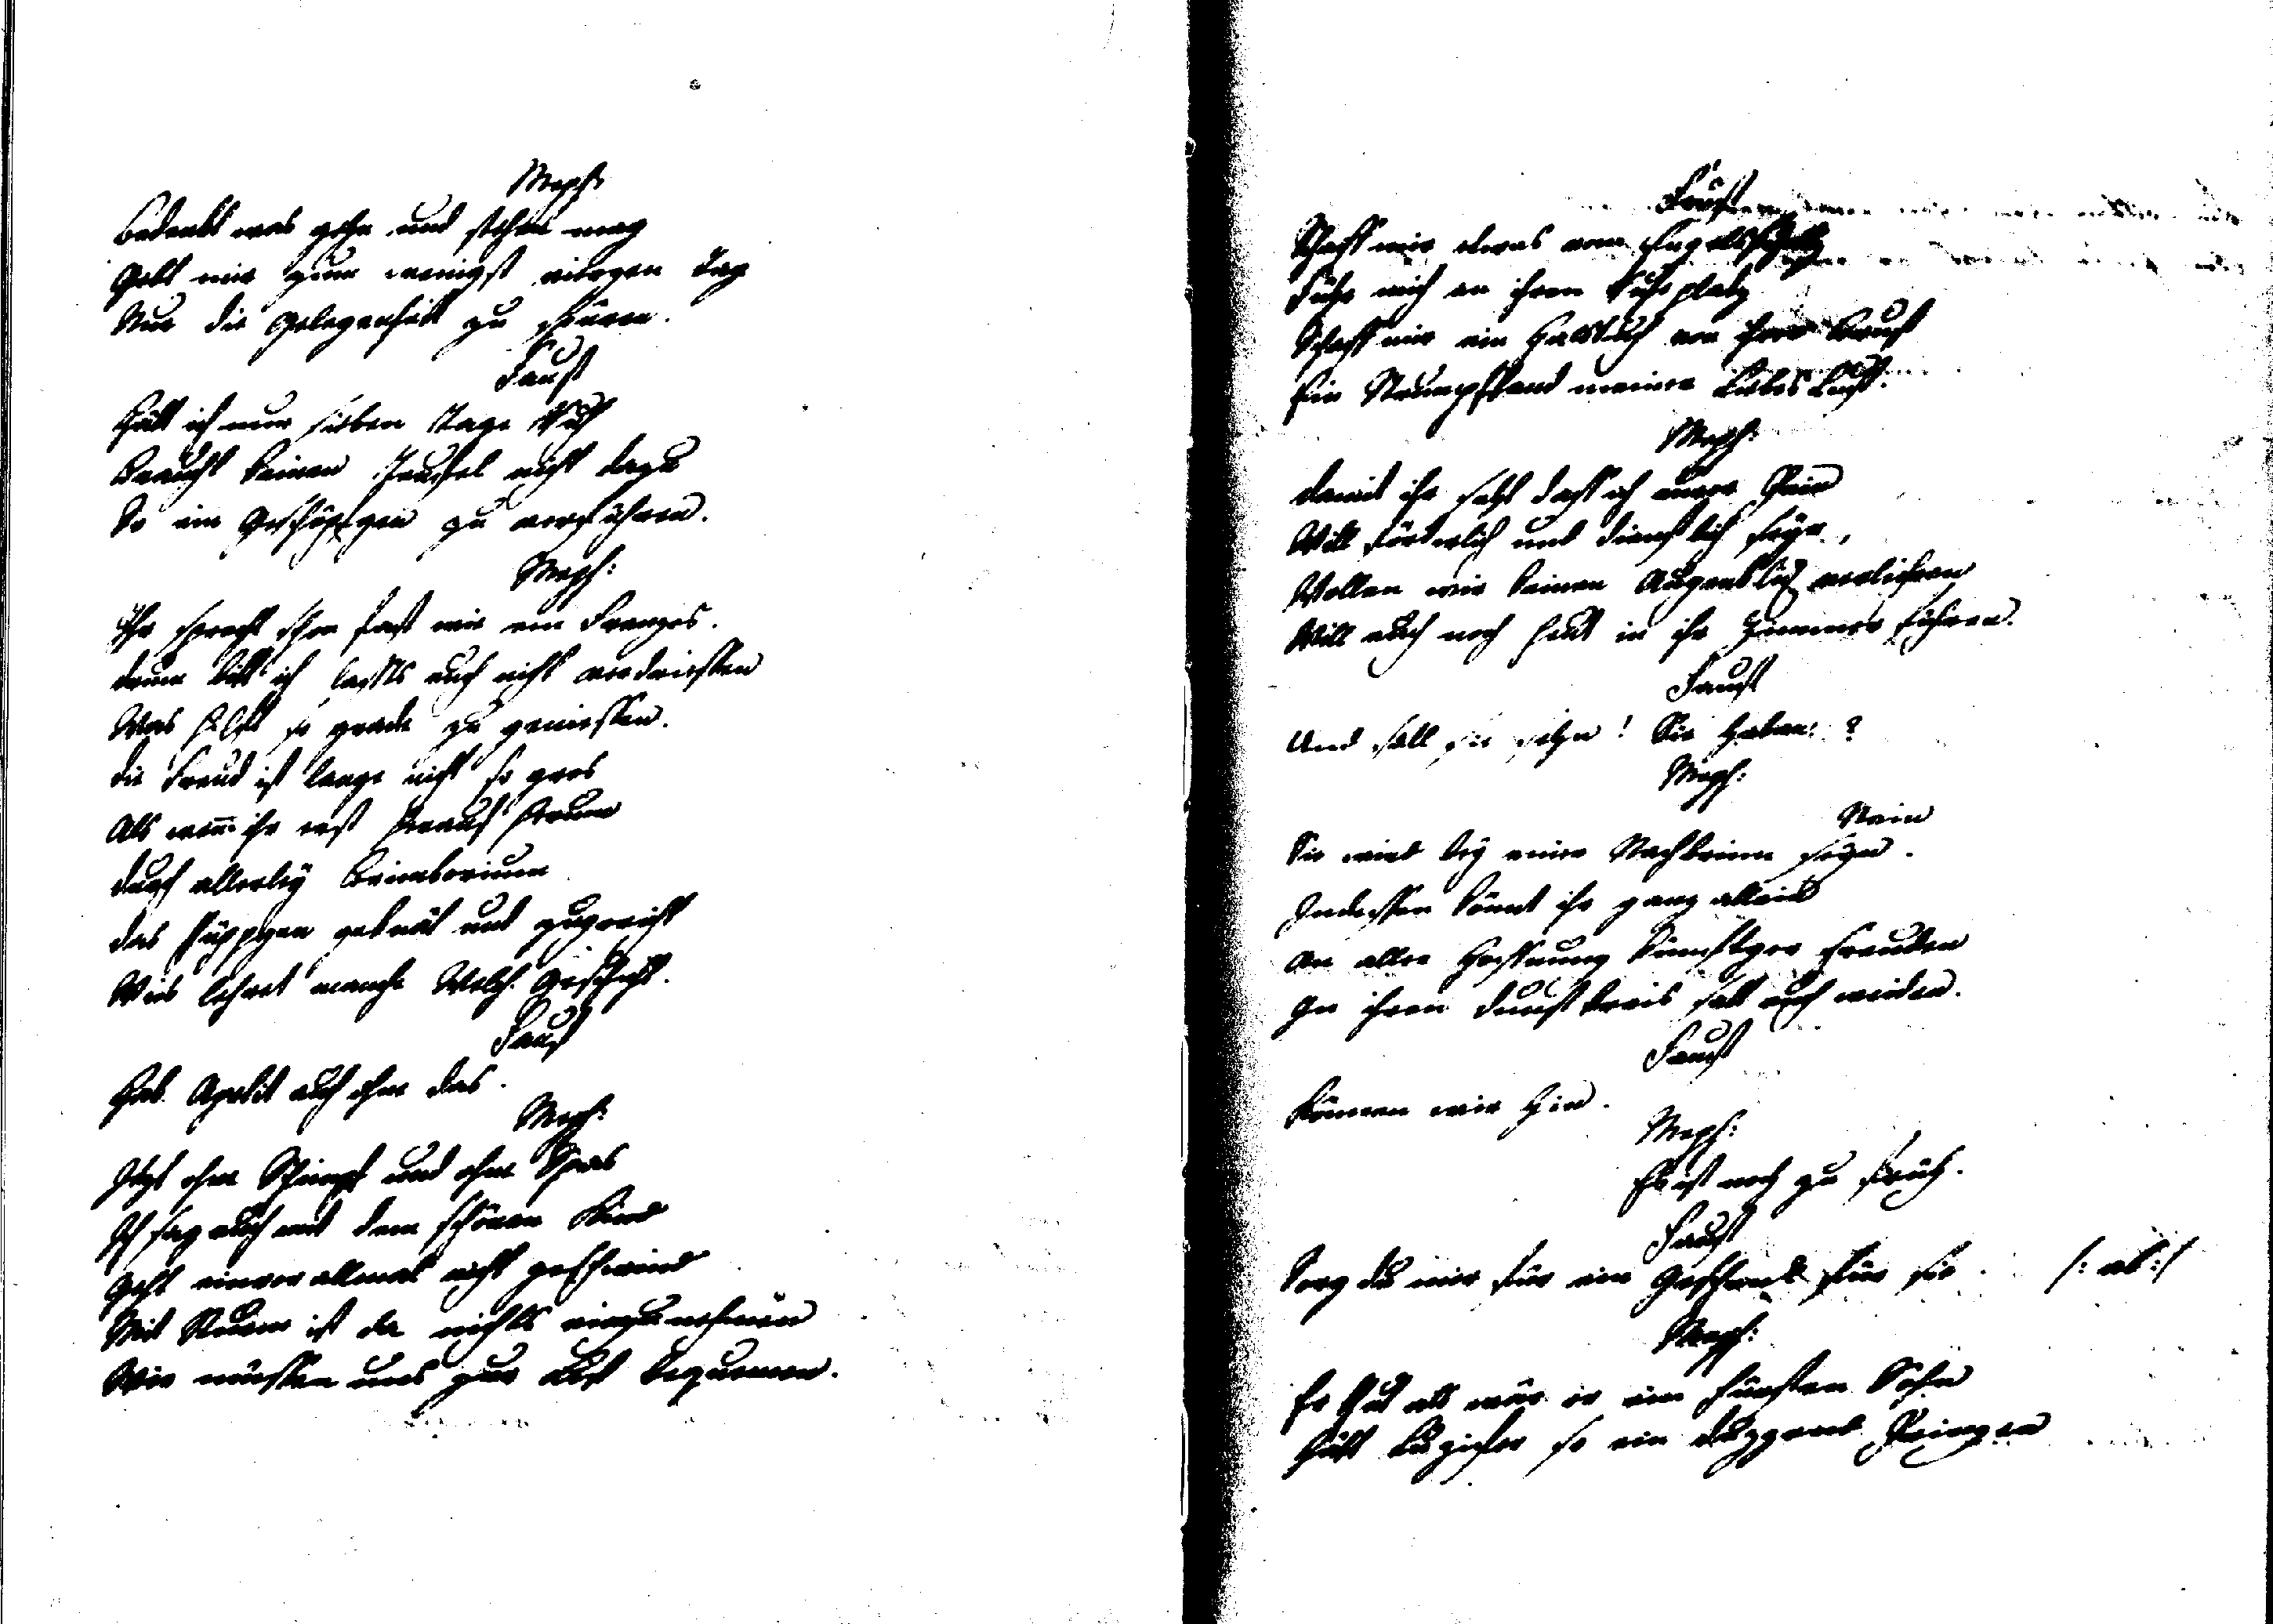 Meph:
Bedenckt was gehn und stehen mag
Gebt mir zum wenigst vierzen Tag
Nur die Gelegenheit zu spüren.
Faust
Hätt ich nur sieben Tage Ruh
Braucht keinen Teufel nicht dazu
So ein Geschöpfgen zu verführen.
Meph:
Ihr sprecht schon fast wie ein Franzos.
Drum bitt ich lassts euch nicht verdriessen
Was hilft so grade zu geniessen.
Die Freud ist lange nicht so gros
Als wenn ihr erst herauf herum
Durch allerley Brimborium
Das Püppgen geknät und zugericht
Wies lehret manche Welsch Geschicht.
Faust
Hab Apetit auch ohne das.
Meph:
Jetzt ohne Schimpf und ohne Spas
Ich sag euch mit dem schönen Kind
Geht einvorallemal nicht geschwind
Mit Sturm ist da nichts einzunehmen
Wir müssen uns zur List bequemen.
Faust
Schaff mir etwas vom Engelsschatz
Führ mich an ihren Ruhe platz
Schaff mir ein Halstuch von ihrer Brust
Ein Strumpfband meiner Liebes Lust.
Meph:
Damit ihr seht dass ich eurer Pein
Will förderlich und dienstlich seyn,
Wollen wir keinen Augenblick verliehren
Will euch noch heut in ihr Zimmer führen.
Faust
Und soll sie sehn! Sie haben?
Meph:
Nein
Sie wird bey einer Nachbrinn seyn.
Indessen könnt ihr ganz allein
An aller Hoffnung künftger Freuden
In ihrem Dunstkreis satt euch weiden.
Faust
Können wir hin.
Meph:
Es ist noch zu früh.
Faust
Sorg du mir für ein Geschenk für sie. /: ab :/
Meph:
Er thut als wär er ein Fürsten Sohn
Hätt Luzifer so ein Duzzend Prinzen